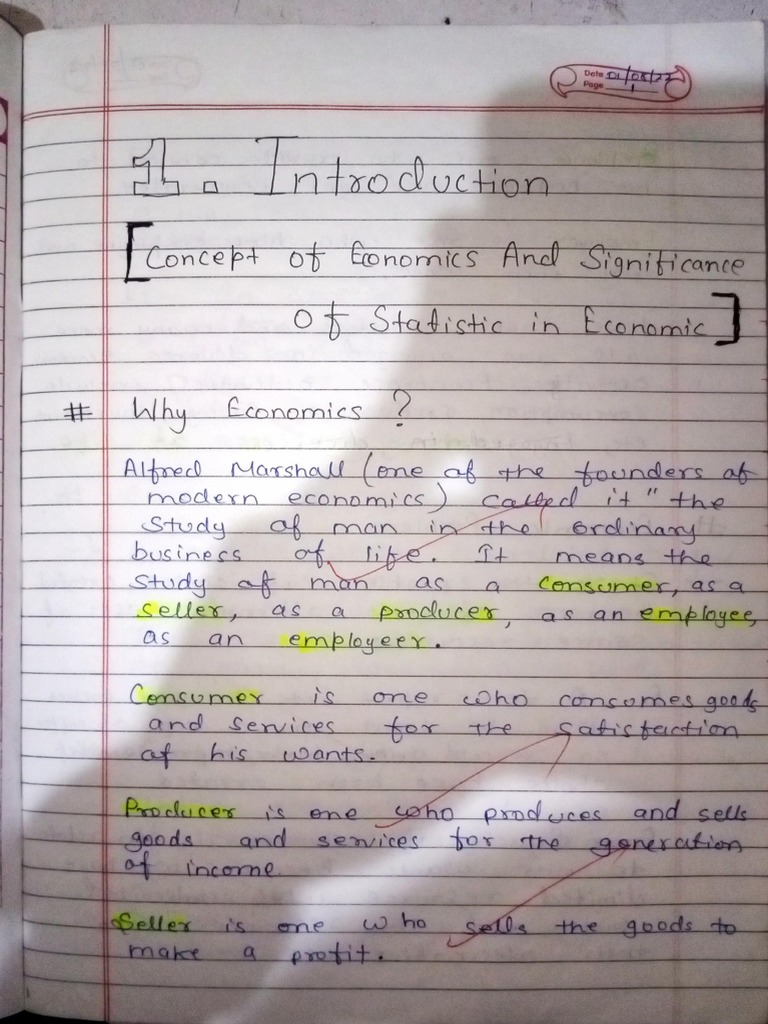 Date 01/08/23
Page 1
1. Introduction
[Concept of Economics And Significance
Of Statistic in Economic]
# Why Economics ?
Alfred Marshall (one of the founders of
modern economics) called it "the
study of man in the ordinary
business of life. It means the
study of man as a consumer, as a
seller, as a producer, as an employee,
as an employeer.
Consumer is one who consumes goods
and services for the satisfaction
of his wants.
Producer is one who produces and sells
goods and services for the generation
of income.
Seller is one who sells the goods to
make a profit.